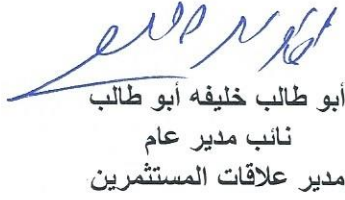 أبو طالب خليفه أبو طالب
نائب مدير عام
مدير علاقات المستثمرين